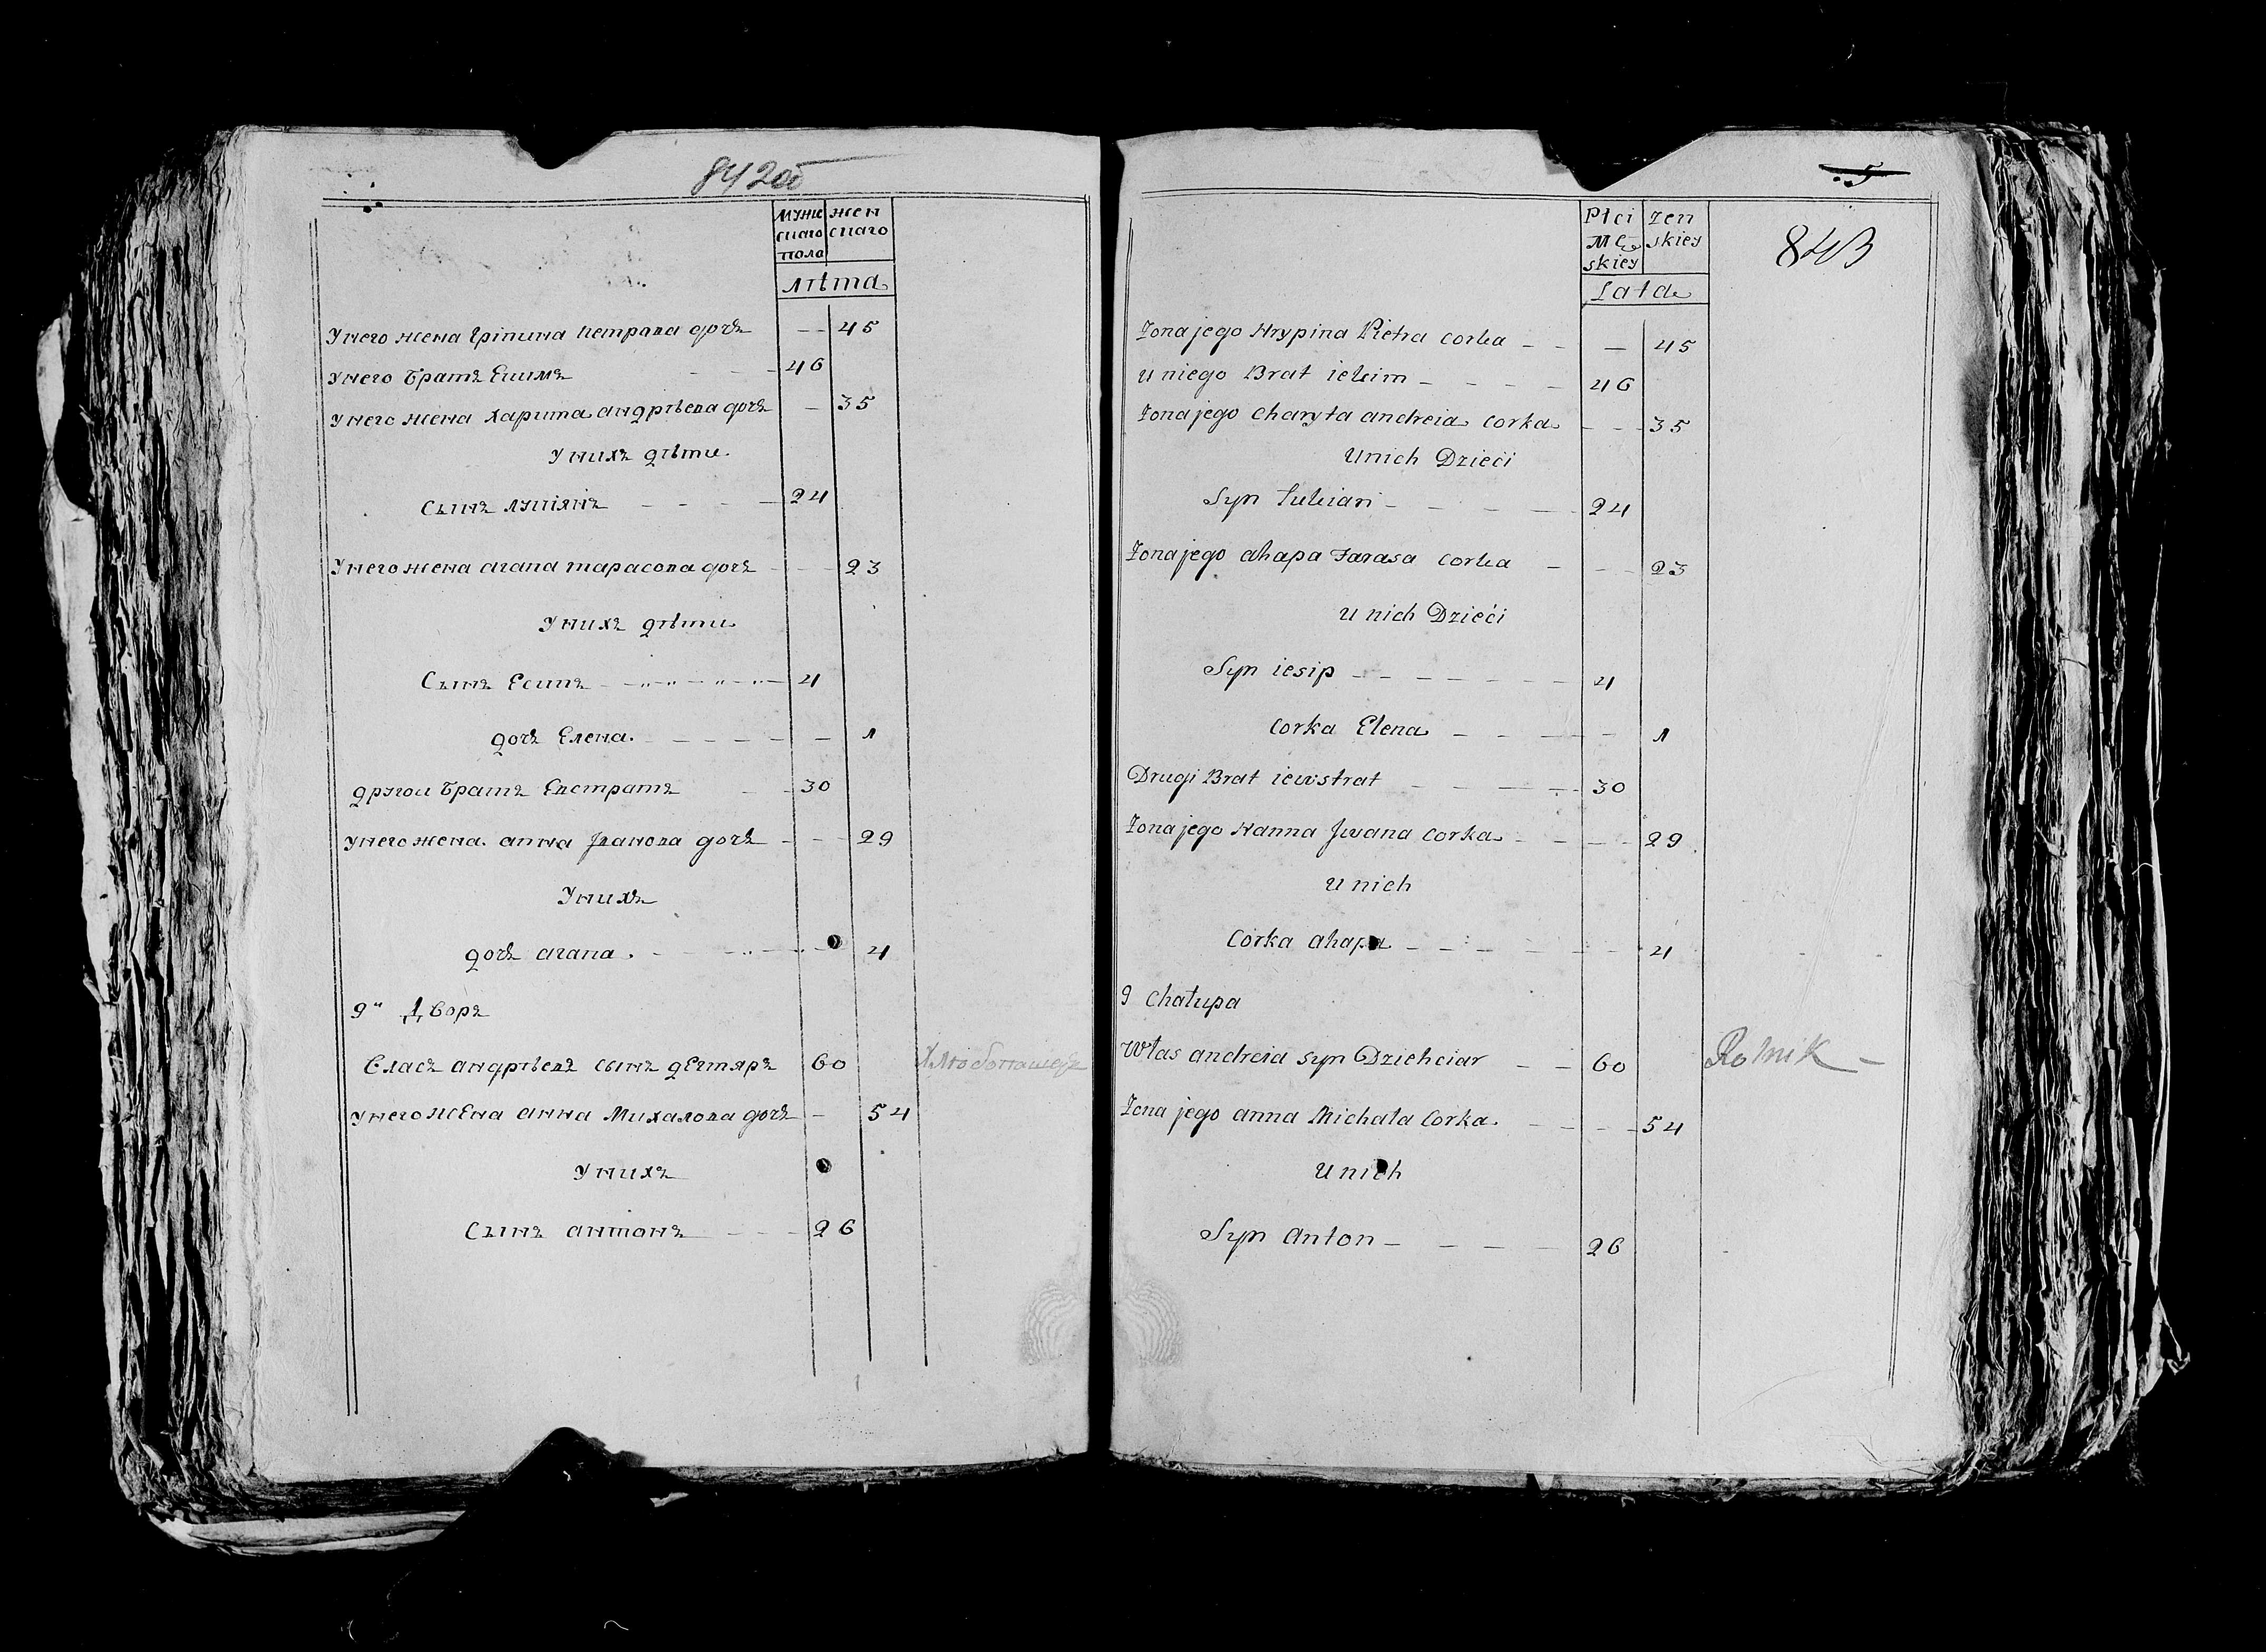 842об
муже жен
скаго скаго
пола
лѣта
У него жена Гріпина петрова дочъ — 45
У него братъ Екимъ 46
У него жена харита андрѣева дочъ — 35
У нихъ дѣти
Сынъ лукіянъ 24
У него жена агапа тарасова дочъ 23
У нихъ дѣти
Сынъ Есипъ 4
дочъ Елена 1
другои братъ Евстратъ 30
У него жена анна Іванова дочъ 29
У нихъ
дочъ агапа 4
9" Дворъ
Власъ андрѣевъ сынъ дегтяръ 60 Хлѣбопашецъ
У него жена анна Михалова дочъ 54
У нихъ
Сынъ антонъ 26
5
843
Płci Zen
Mę skiey
skiey
Lata
Zona jego Hrypina Pietra corka — 45
U niego Brat iekim 46
Zona jego Charyta andreia corka 35
U nich Dzieci
Syn Łukian 24
Zona jego ahapa Tarasa corka 23
U nich Dzieći
Syn iesip 4
Corka Elena 1
Drugi Brat iewstrat 30
Zona jego Hanna Jwana Corka 29
U nich
Corka ahapa 4
9 Chałupa
Włas andreia syn Dziehciar 60 Rolnik
Zona jego anna Michała Corka 54
U nich
Syn Anton 26